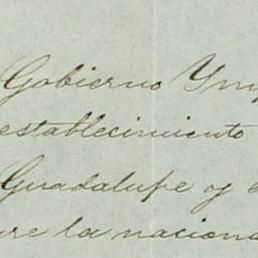 Gobierno Ymp
establecimiento
Guadalupe y e
re la naciona